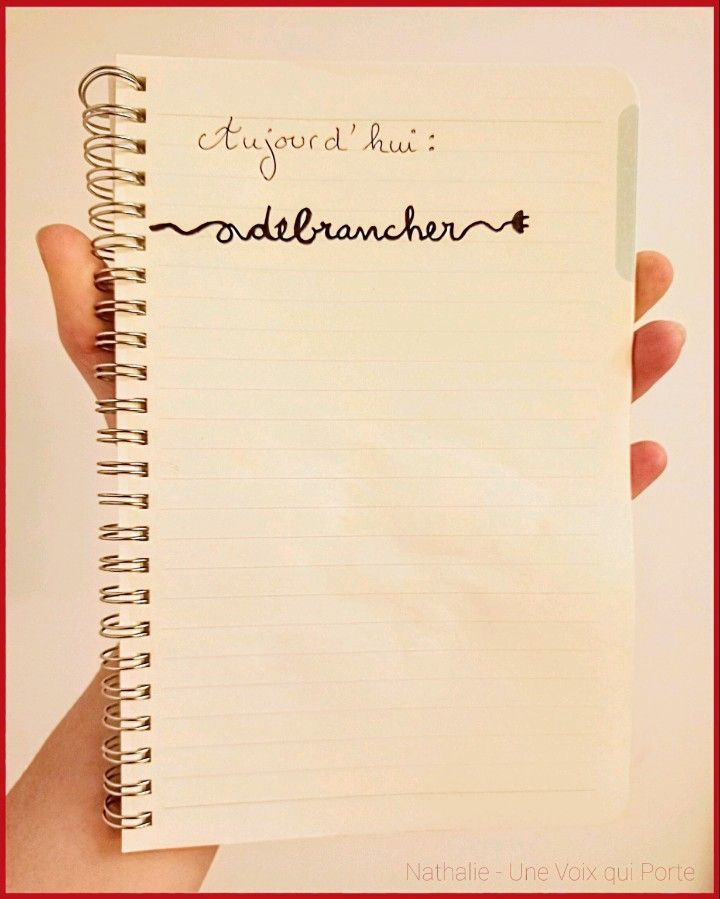 Aujourd'hui :
débrancher
Nathalie - Une Voix qui Porte